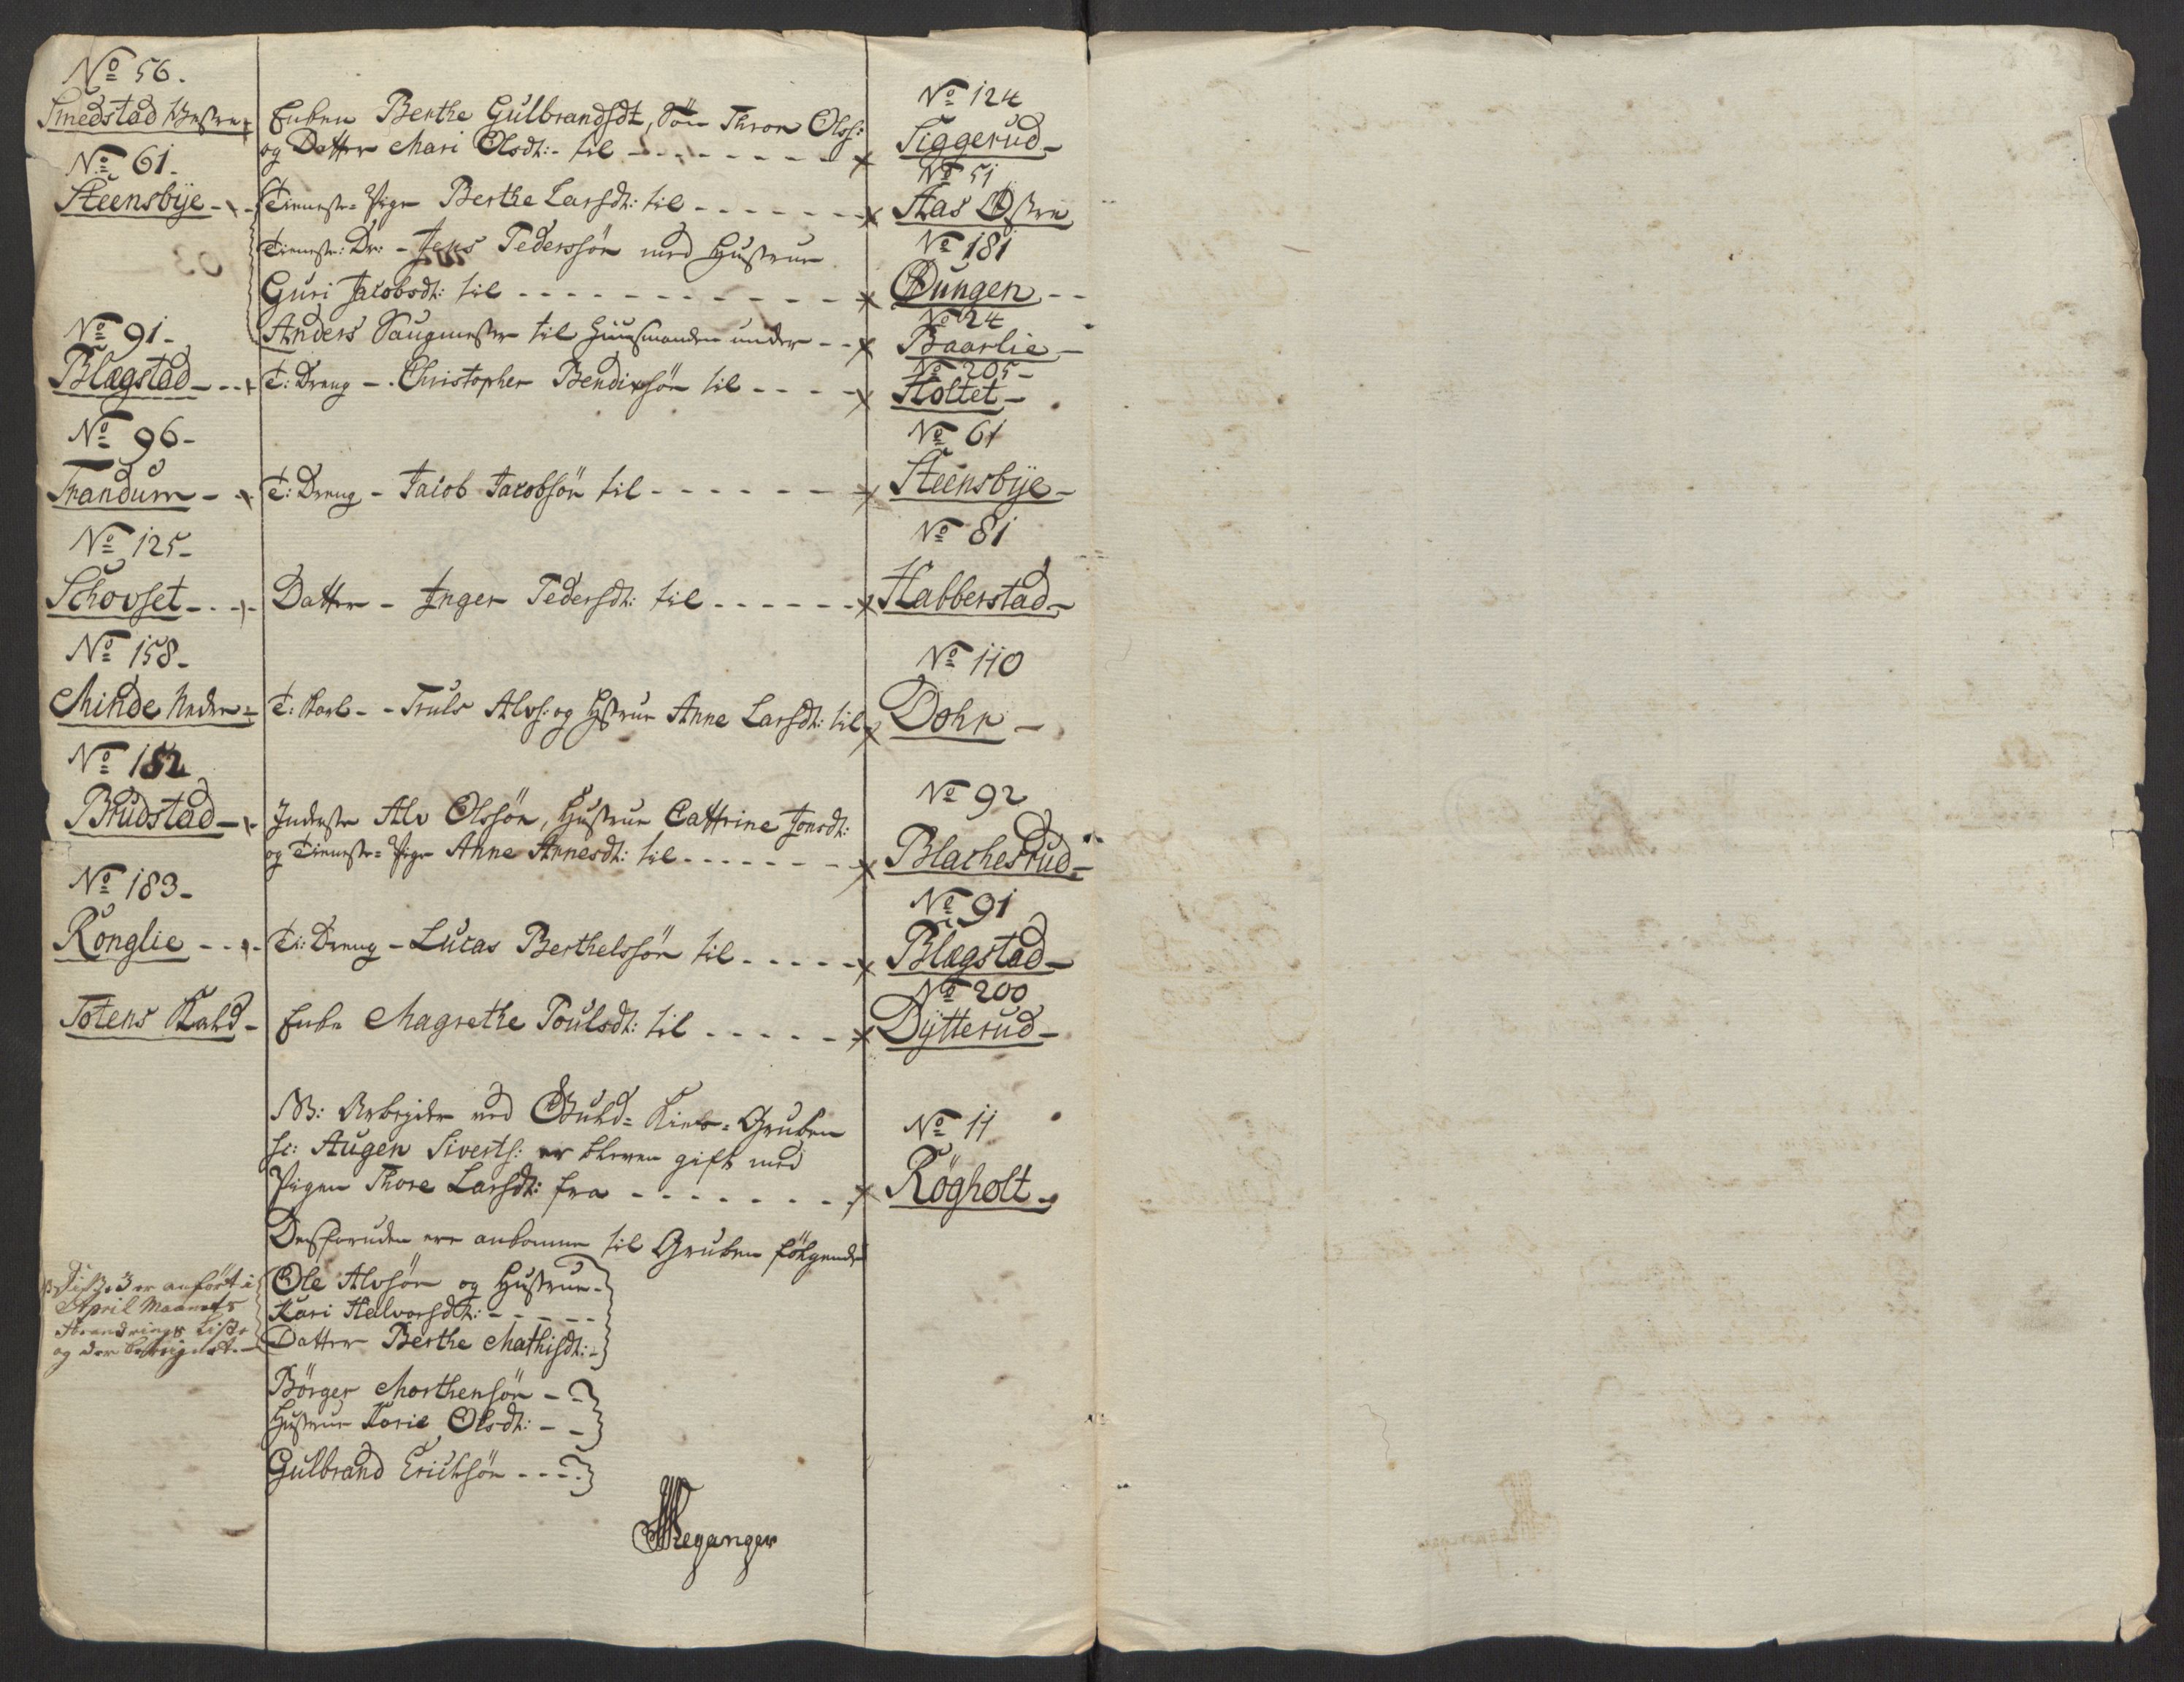 No 56.
Smedstad Westre
Enken Berthe Gulbrandsdt, Sön Thron Olss:
og Datter Mari Olsdt:- til
No 124
Siggerud
No 61.
Steensbye
Tieneste-Pige Berthe Larsdt: til
No 51
Aas Østre
Tieneste: Dr: - Jens Pederssön med Hustrue
Guri Jacobsdt: til
No 181
Dungen
Anders Saugmester til Huusmanden under
No 24
Baarlie
No 91-
Blegstad
T: Dreng - Christopher Bendixsön til
No 205-
Holtet
No 96-
Trandum
T: Dreng - Jacob Jacobsön til
No 61
Steensbye
No 125-
Schovset
Datter - Inger Pedersdt: til
No 81
Habberstad
No 158-
Minde Nedre
T: Karl - - Truls Alvs: og Hustrue Anne Larsdt: til
No 110
Dohr
No 182
Brudstad
Inderste Alv Olssön, Hustrue Cattrine Jonsdt:
og Tieneste-Pige Anne Arnesdt: til
No 92
Blachestud
No 183-
Ronglie
Ti: Dreng - Lucas Berthelssön til
No 91
Blegstad
Totens Kald
Enke Magrethe Poulsdt: til
No 200
Dytterud
NB: Arbeyder ved Guld-Kies-Gruben
sc: Augen Siverts: er bleven gift med
Pigen Thore Larsdt: fra
No 11
Rögholt
Desforuden ere ankomne til Gruben fölgende
Disse 3 er anført i
April Maaneds
Vandrings Liste
og der
Ole Alvsön og Hustrue
Kari Halvorsdt:
Datter Berthe Mathisdt:
Börger Morthensön
Hustrue Karie Olsdt:
Gulbrand Erichsön